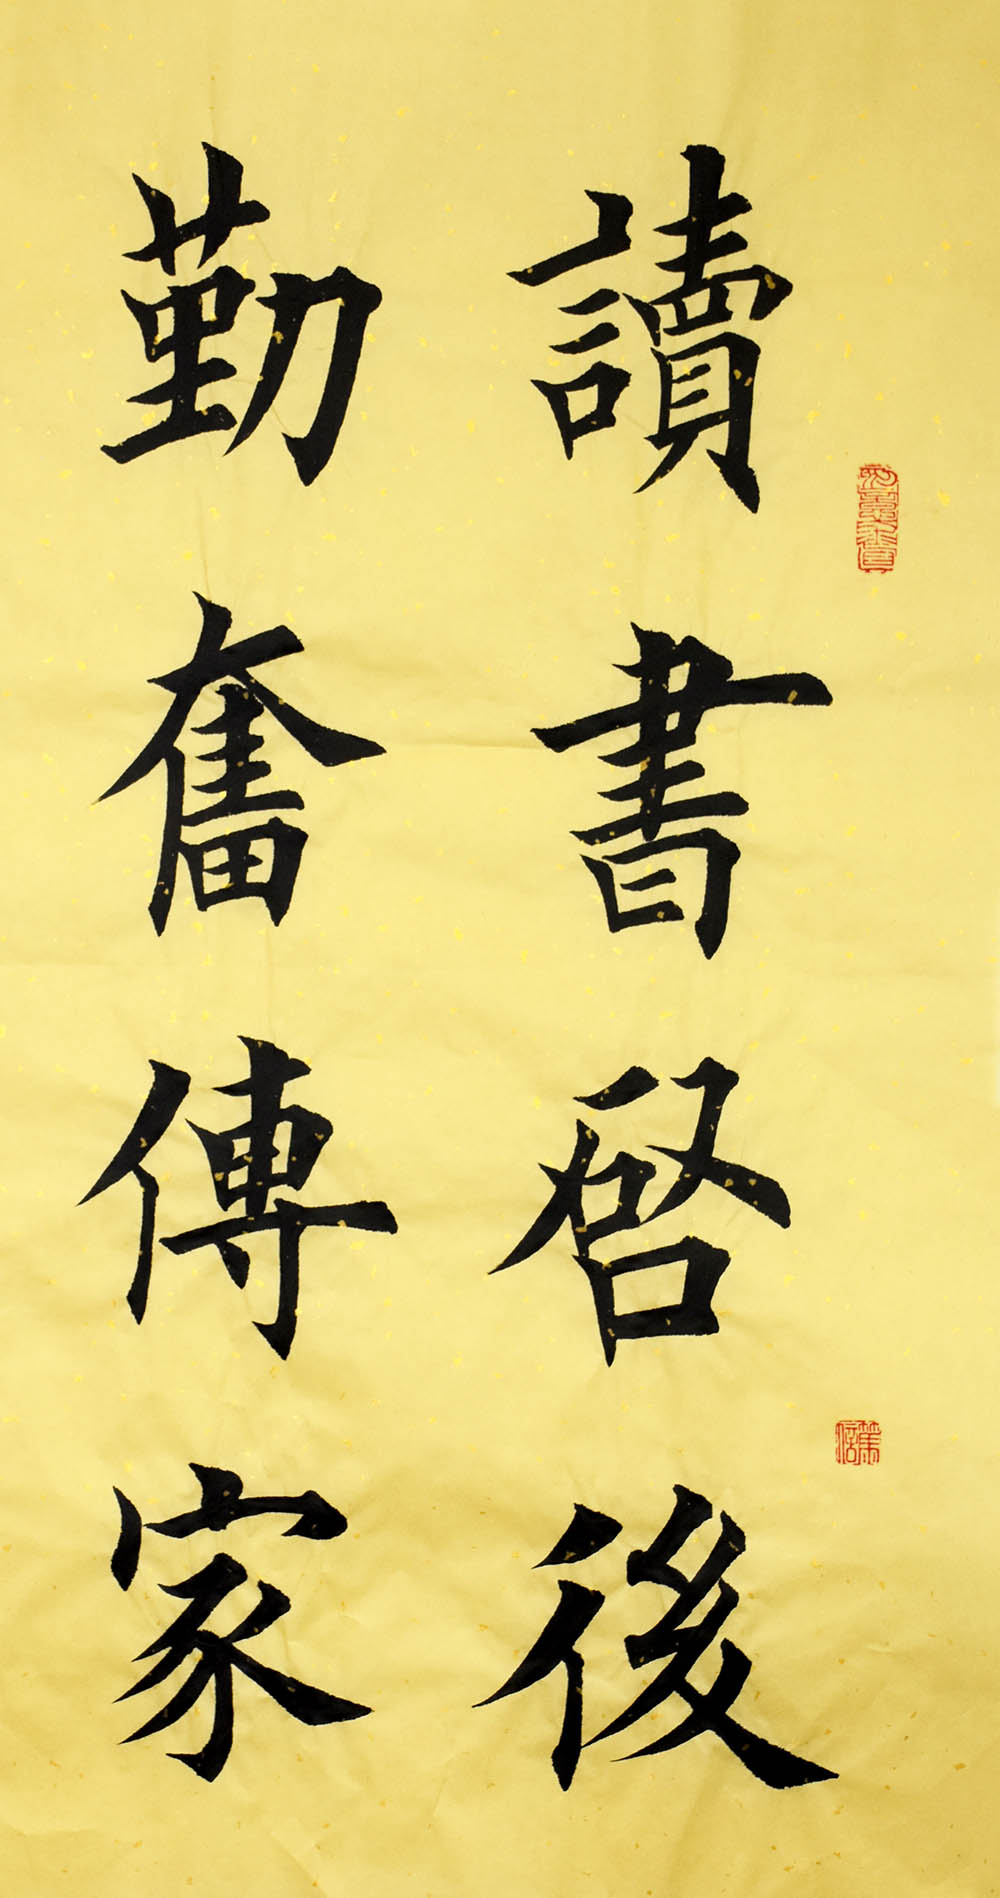 讀書啓後
勤奮傳家